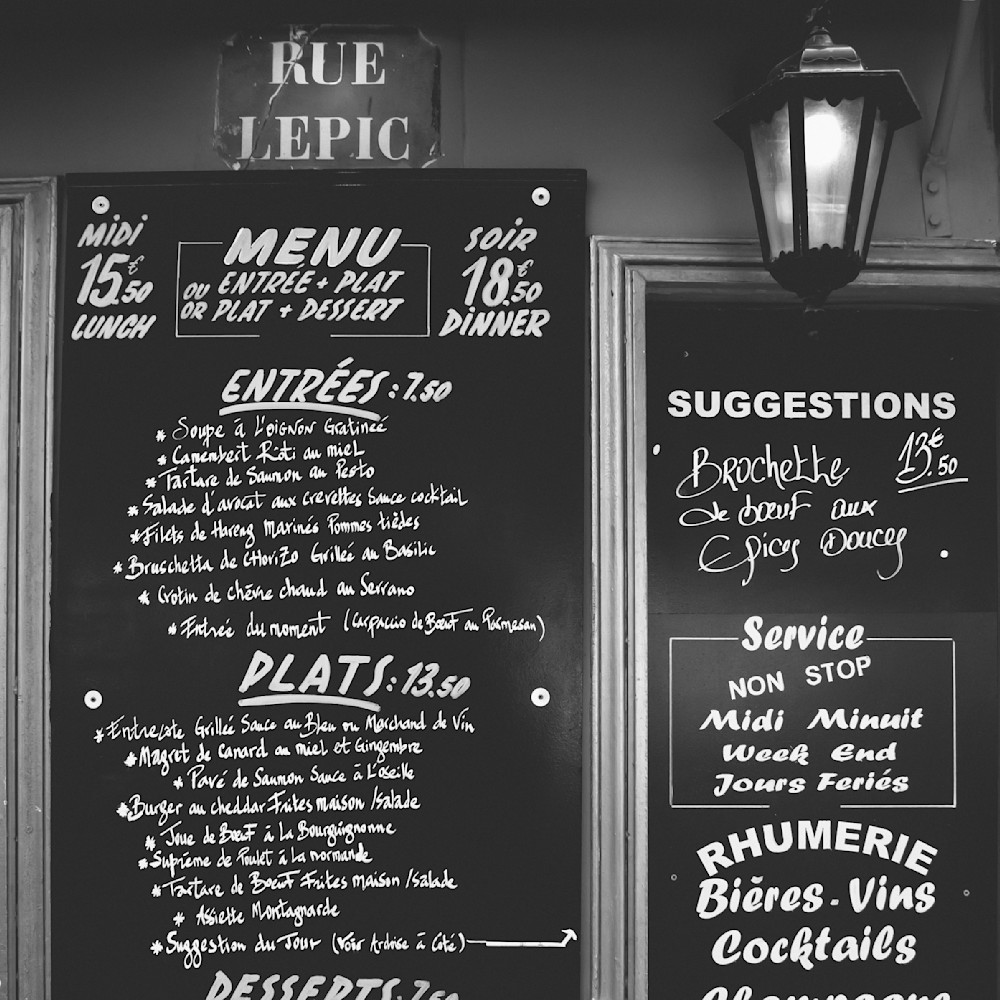 RUE
LEPIC
MIDI
15€.50
LUNCH
MENU
OU ENTREE + PLAT
OR PLAT + DESSERT
SOIR
18€.50
DINNER
ENTRÉES : 7.50
* Soupe à L'oignon Gratineé
* Camembert Rôti au miel
* Tartare de Saumon au Pesto
* Salade d'avocat aux crevettes Sauce cocktail
* Filets de Hareng Marinés Pommes tièdes
* Bruschetta de CHorizo Grilleé au Basilic
* Crotin de chèvre chaud au Serrano
* Entreé du moment (Carpaccio de Bœuf au Parmesan)
PLATS : 13.50
* Entrecote Grilleé Sauce au Bleu ou Marchand de Vin
* Magret de Canard au miel et Gingembre
* Pavé de Saumon Sauce à L'oseille
* Burger au cheddar Frites maison /salade
* Joue de Bœuf à La Bourguignonne
* Suprème de Poulet à la normande
* Tartare de Bœuf Frites maison /salade
* Assiette Montagnarde
* Suggestion du Jour (Voir Ardoise à Coté)
DESSERTS : 7.50
SUGGESTIONS
Brochette 13€.50
de bœuf aux
Epices Douces
Service
NON STOP
Midi Minuit
Week End
Jours Feriés
RHUMERIE
Bières - Vins
Cocktails
Champagne